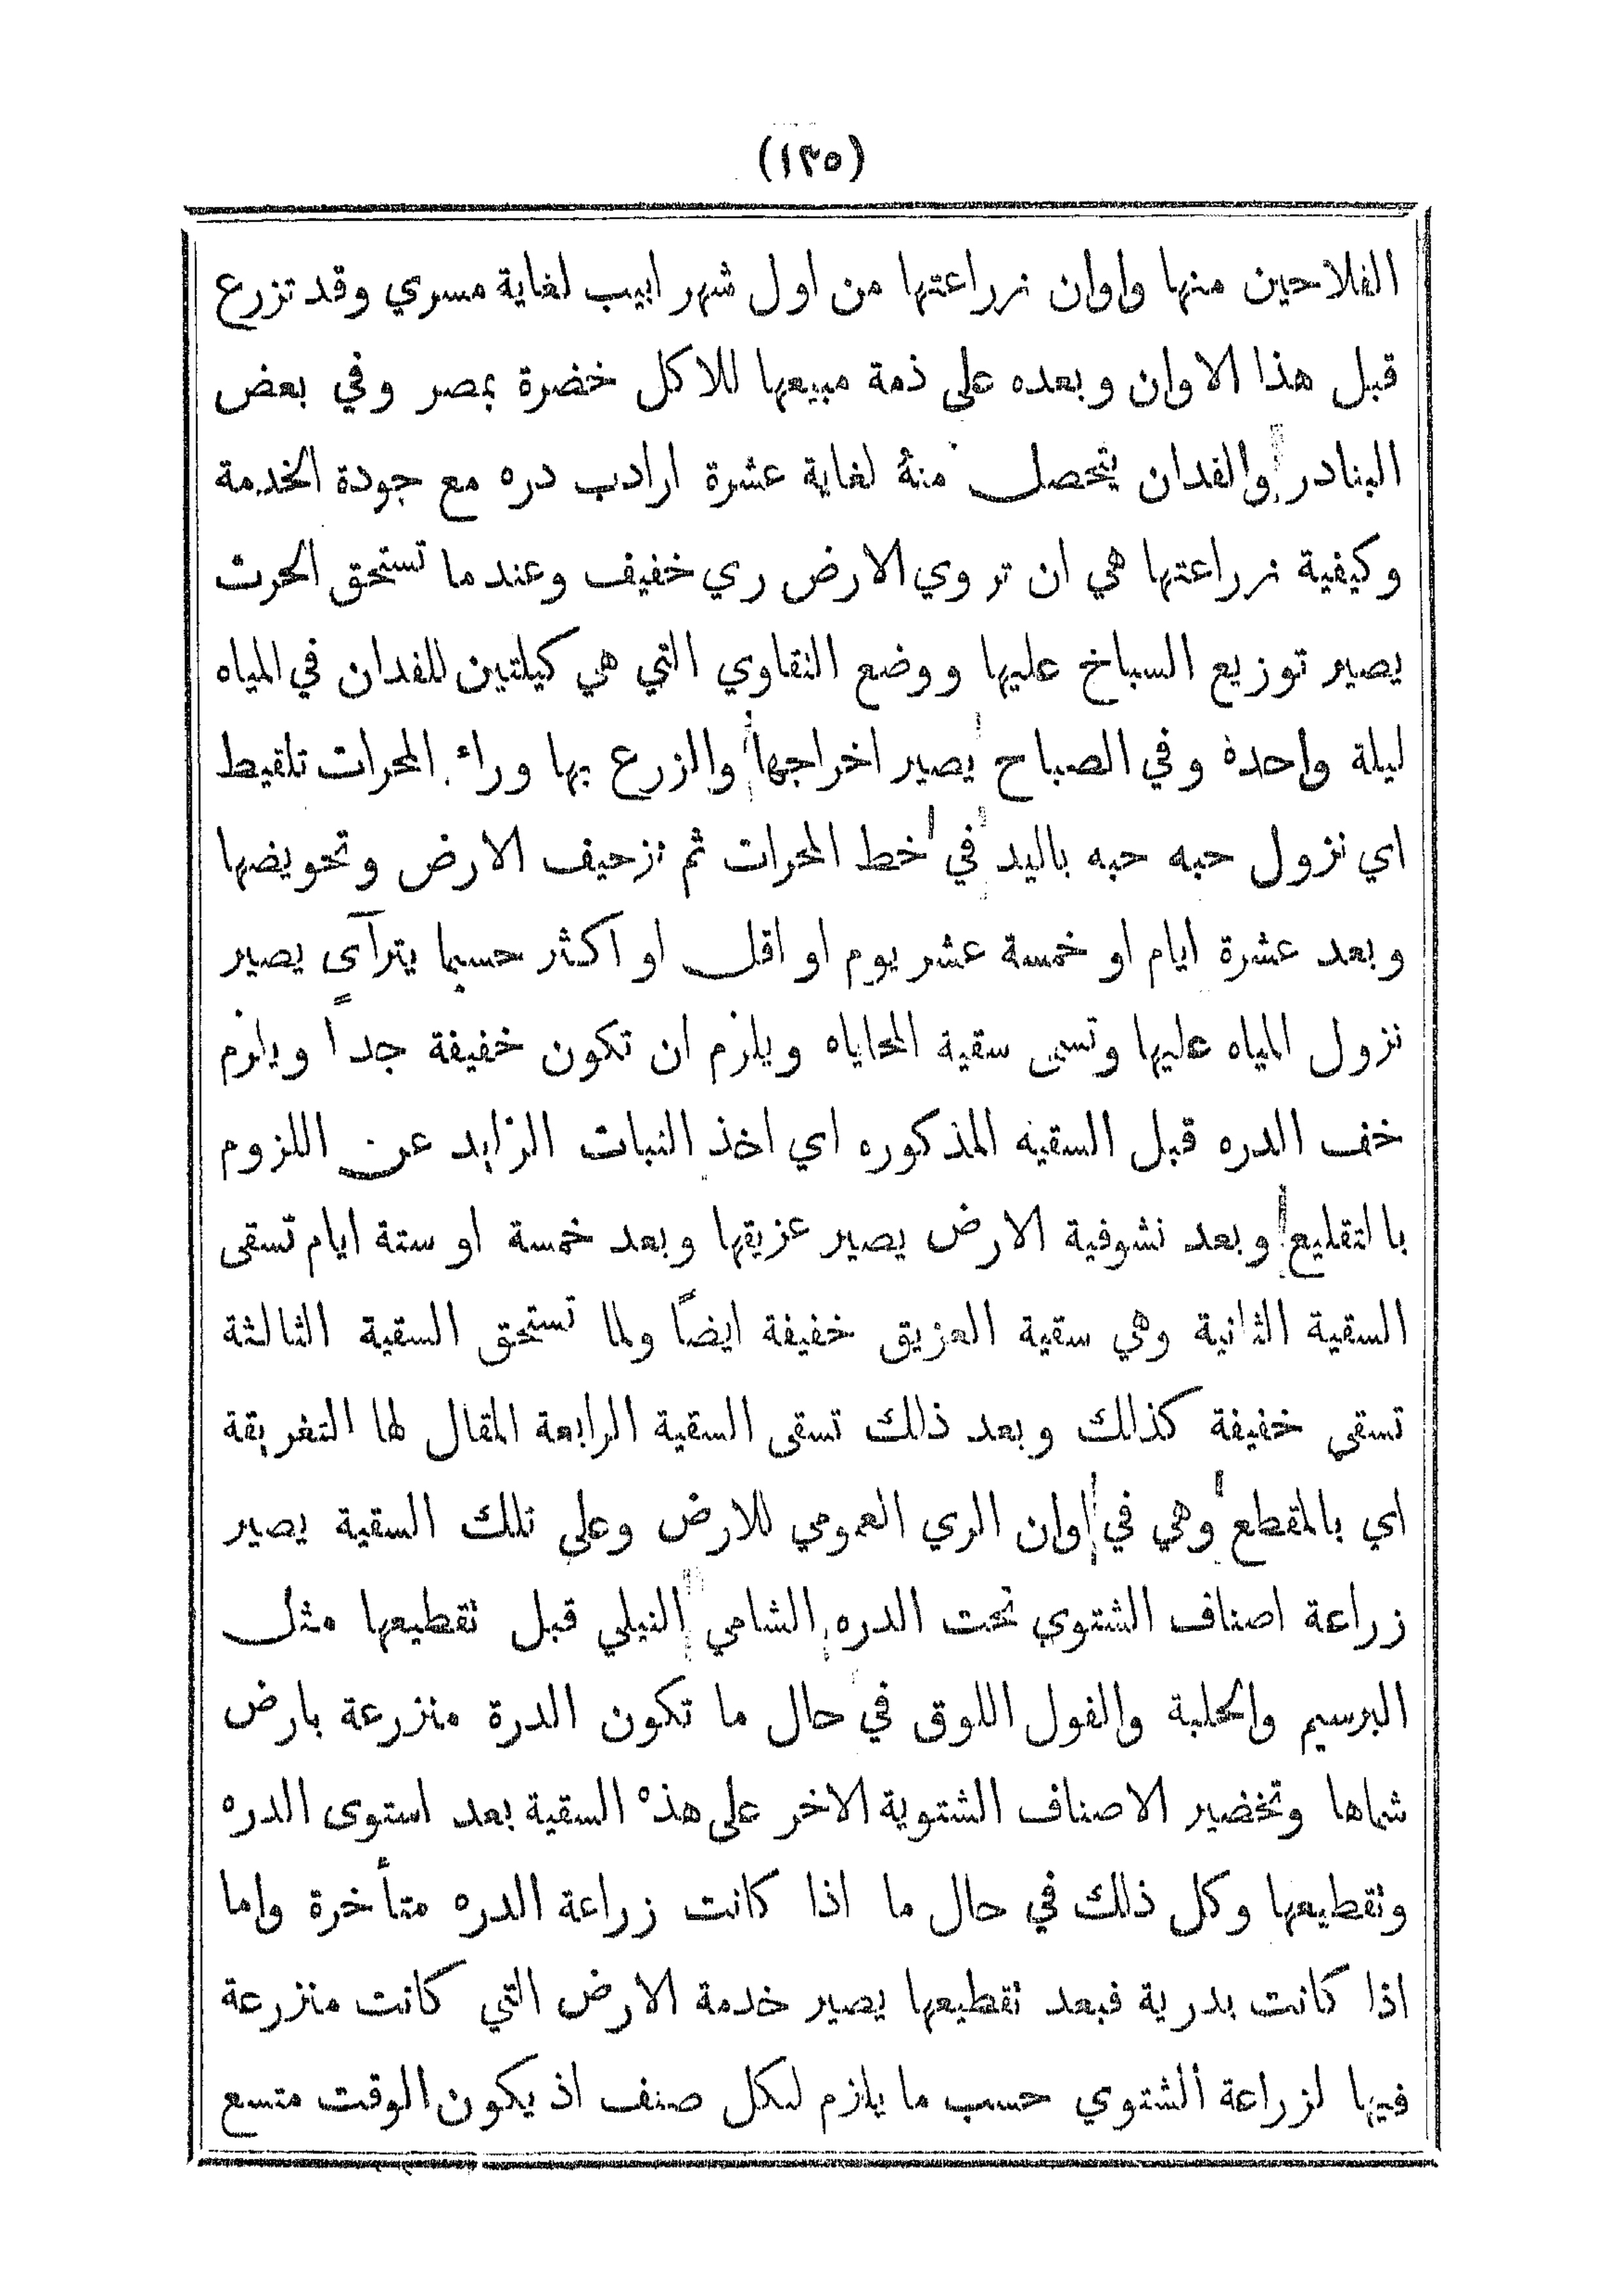 (١٣٥)
الفلاحين منها واوان زراعتها من اول شهر ابيب لغاية مسري وقد تزرع
قبل هذا الاوان وبعده على ذمة مبيعها للاكل خضرة بمصر وفي بعض
البنادر والفدان يتحصل منهُ لغاية عشرة ارادب دره مع جودة الخدمة
وكيفية زراعتها هي ان تروي الارض ري خفيف وعند ما تستحق الحرث
يصير توزيع السباخ عليها ووضع التقاوي التي هي كيلتين للفدان في المياه
ليلة واحدة وفي الصباح يصير اخراجها والزرع بها وراء المحرات تلقيط
اي نزول حبه حبه باليد في خط المحرات ثم تزحيف الارض وتحويضها
وبعد عشرة ايام او خمسة عشر يوم او اقل او اكثر حسبما يترآى يصير
نزول المياه عليها وتسمى سقية المحاياه ويلزم ان تكون خفيفة جداً ويلزم
خف الدره قبل السقيه المذكوره اي اخذ النبات الزايد عن اللزوم
بالتقليع وبعد نشوفية الارض يصير عزيقها وبعد خمسة او ستة ايام تسقى
السقية الثانية وهي سقية العزيق خفيفة ايضاً ولما تستحق السقية الثالثة
تسقى خفيفة كذلك وبعد ذلك تسقى السقية الرابعة المقال لها التغريقة
اي بالمقطع وهي في اوان الري العمومي للارض وعلى تلك السقية يصير
زراعة اصناف الشتوي تحت الدره الشامي النيلي قبل تقطيعها مثل
البرسيم والحلبة والفول اللوق في حال ما تكون الدرة منزرعة بارض
شماها وتخضير الاصناف الشتوية الاخر على هذه السقية بعد استوى الدره
وتقطيعها وكل ذلك في حال ما اذا كانت زراعة الدره متأخرة واما
اذا كانت بدرية فبعد تقطيعها يصير خدمة الارض التي كانت منزرعة
فيها لزراعة الشتوي حسب ما يلزم لكل صنف اذ يكون الوقت متسع